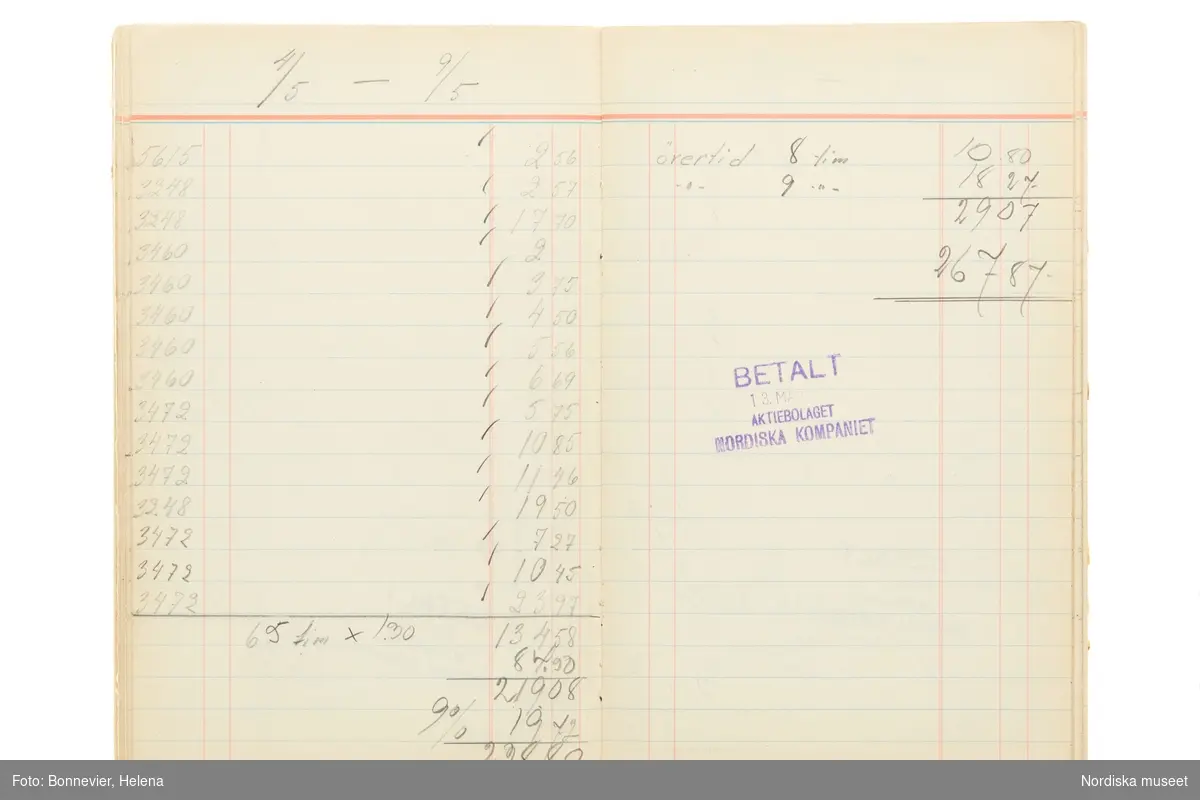 4/5 — 9/5
5615 2 56
3248 2 57
3248 17 70
3460 2
3460 3 75
3460 4 50
3460 5 56
3460 6 69
3472 5 75
3472 10 85
3472 11 46
3248 19 50
3472 7 27
3472 10 45
3472 23 97
65 tim x 1.30 134 58
84.50
219 08
9% 19 72
238 80
övertid 8 tim 10.80
-"- 9 -"- 18 27
29 07
267 87
BETALT
13. MA
AKTIEBOLAGET
NORDISKA KOMPANIET
Foto: Bonnevier, Helena
Nordiska museet